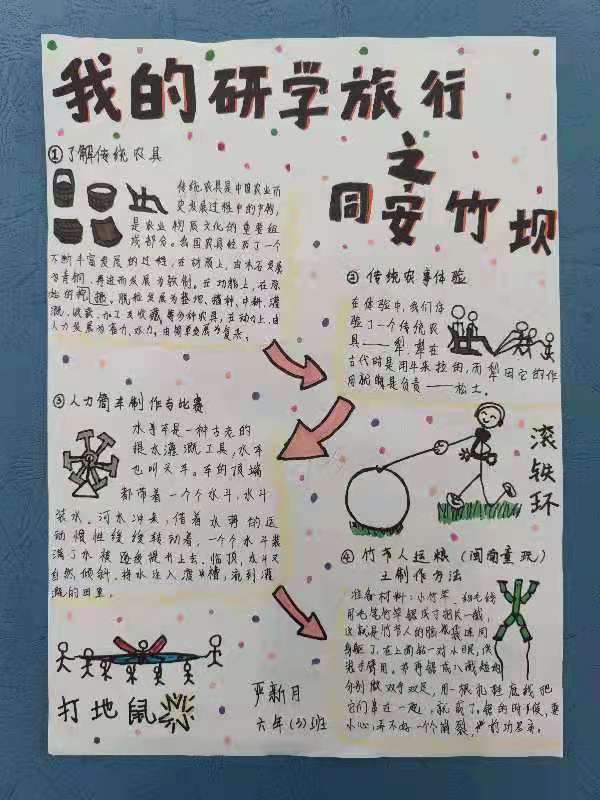 我的研学旅行
之
同安竹坝
①了解传统农具
传统农具是中国农业历
史发展过程中的
是农业物质文化的重要组
成部分。我国农具经历了一个
不断丰富发展的过程,在材质上,由木石发展
为青铜,再进而发展为铁制。在功能上,在原
始的 脱粒发展为整地、播种、中耕、灌
溉、收获、加工及收藏等多种农具,在动力上,由
人力发展为畜力、水力。由简单发展为复杂。
②传统农事体验
在体验中,我们体
验了一个传统农
具——犁,犁在
古代时是用牛来拉的,而犁田它的作
用就是负责——松土。
③人力筒车制作与比赛
水车是一种古老的
提水灌溉工具,水车
也叫天车。车的顶端
都带着一个个水斗,水斗
装水。河水冲来,借着水势的运
动惯性缓缓转动着,一个个水斗装
满了水被逐级提升上去。临顶,水斗又
自然倾斜,将水注入渡槽,流到灌
溉的田里。
滚
铁
环
④竹节人运粮(闽南童玩)
土制作方法
准备材料:小竹竿、
用毛笔竹竿锯成寸把长一截,
这就是竹节人的脑袋连同
身躯了,在上面钻一对小眼,供
装手臂用。再锯成八截短的
分别做双手双足,用一根扎鞋底线把
它们串在一起,就成了。锯的时候,要
小心,弄不好一个个崩裂,前功尽弃。
打地鼠
严新月
六年(3)班